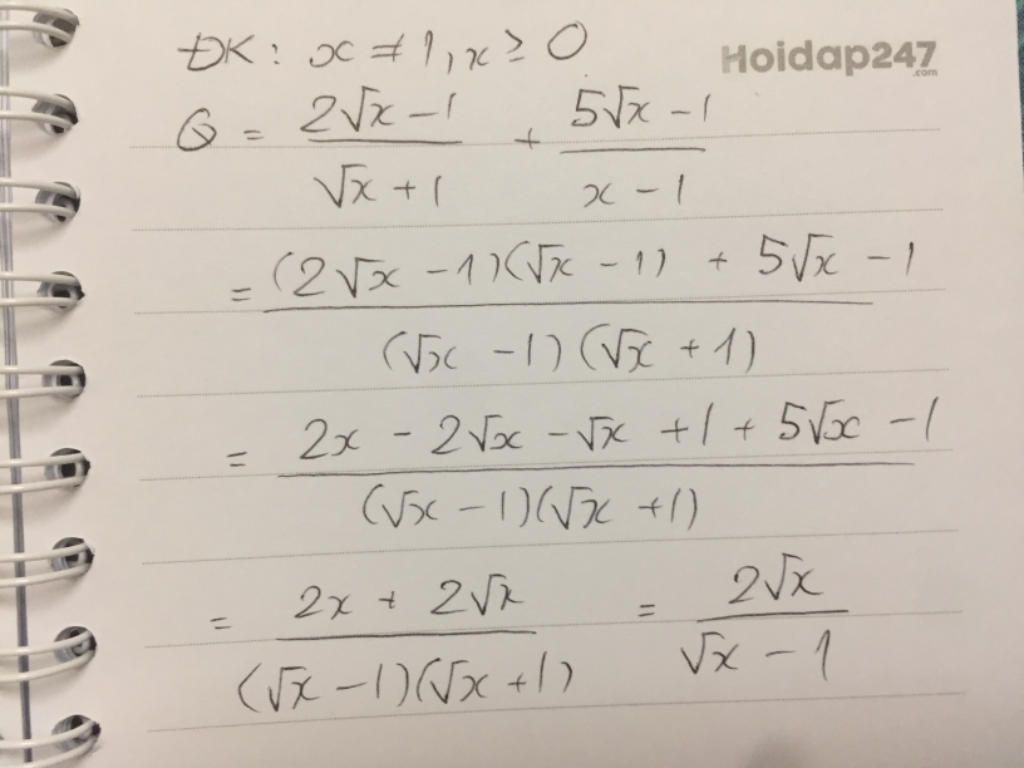 ĐK: x ≠ 1, x ≥ 0
Hoidap247
.com
Q = (2√x - 1)/(√x + 1) + (5√x - 1)/(x - 1)
= ((2√x - 1)(√x - 1) + 5√x - 1)/((√x - 1)(√x + 1))
= (2x - 2√x - √x + 1 + 5√x - 1)/((√x - 1)(√x + 1))
= (2x + 2√x)/((√x - 1)(√x + 1)) = (2√x)/(√x - 1)